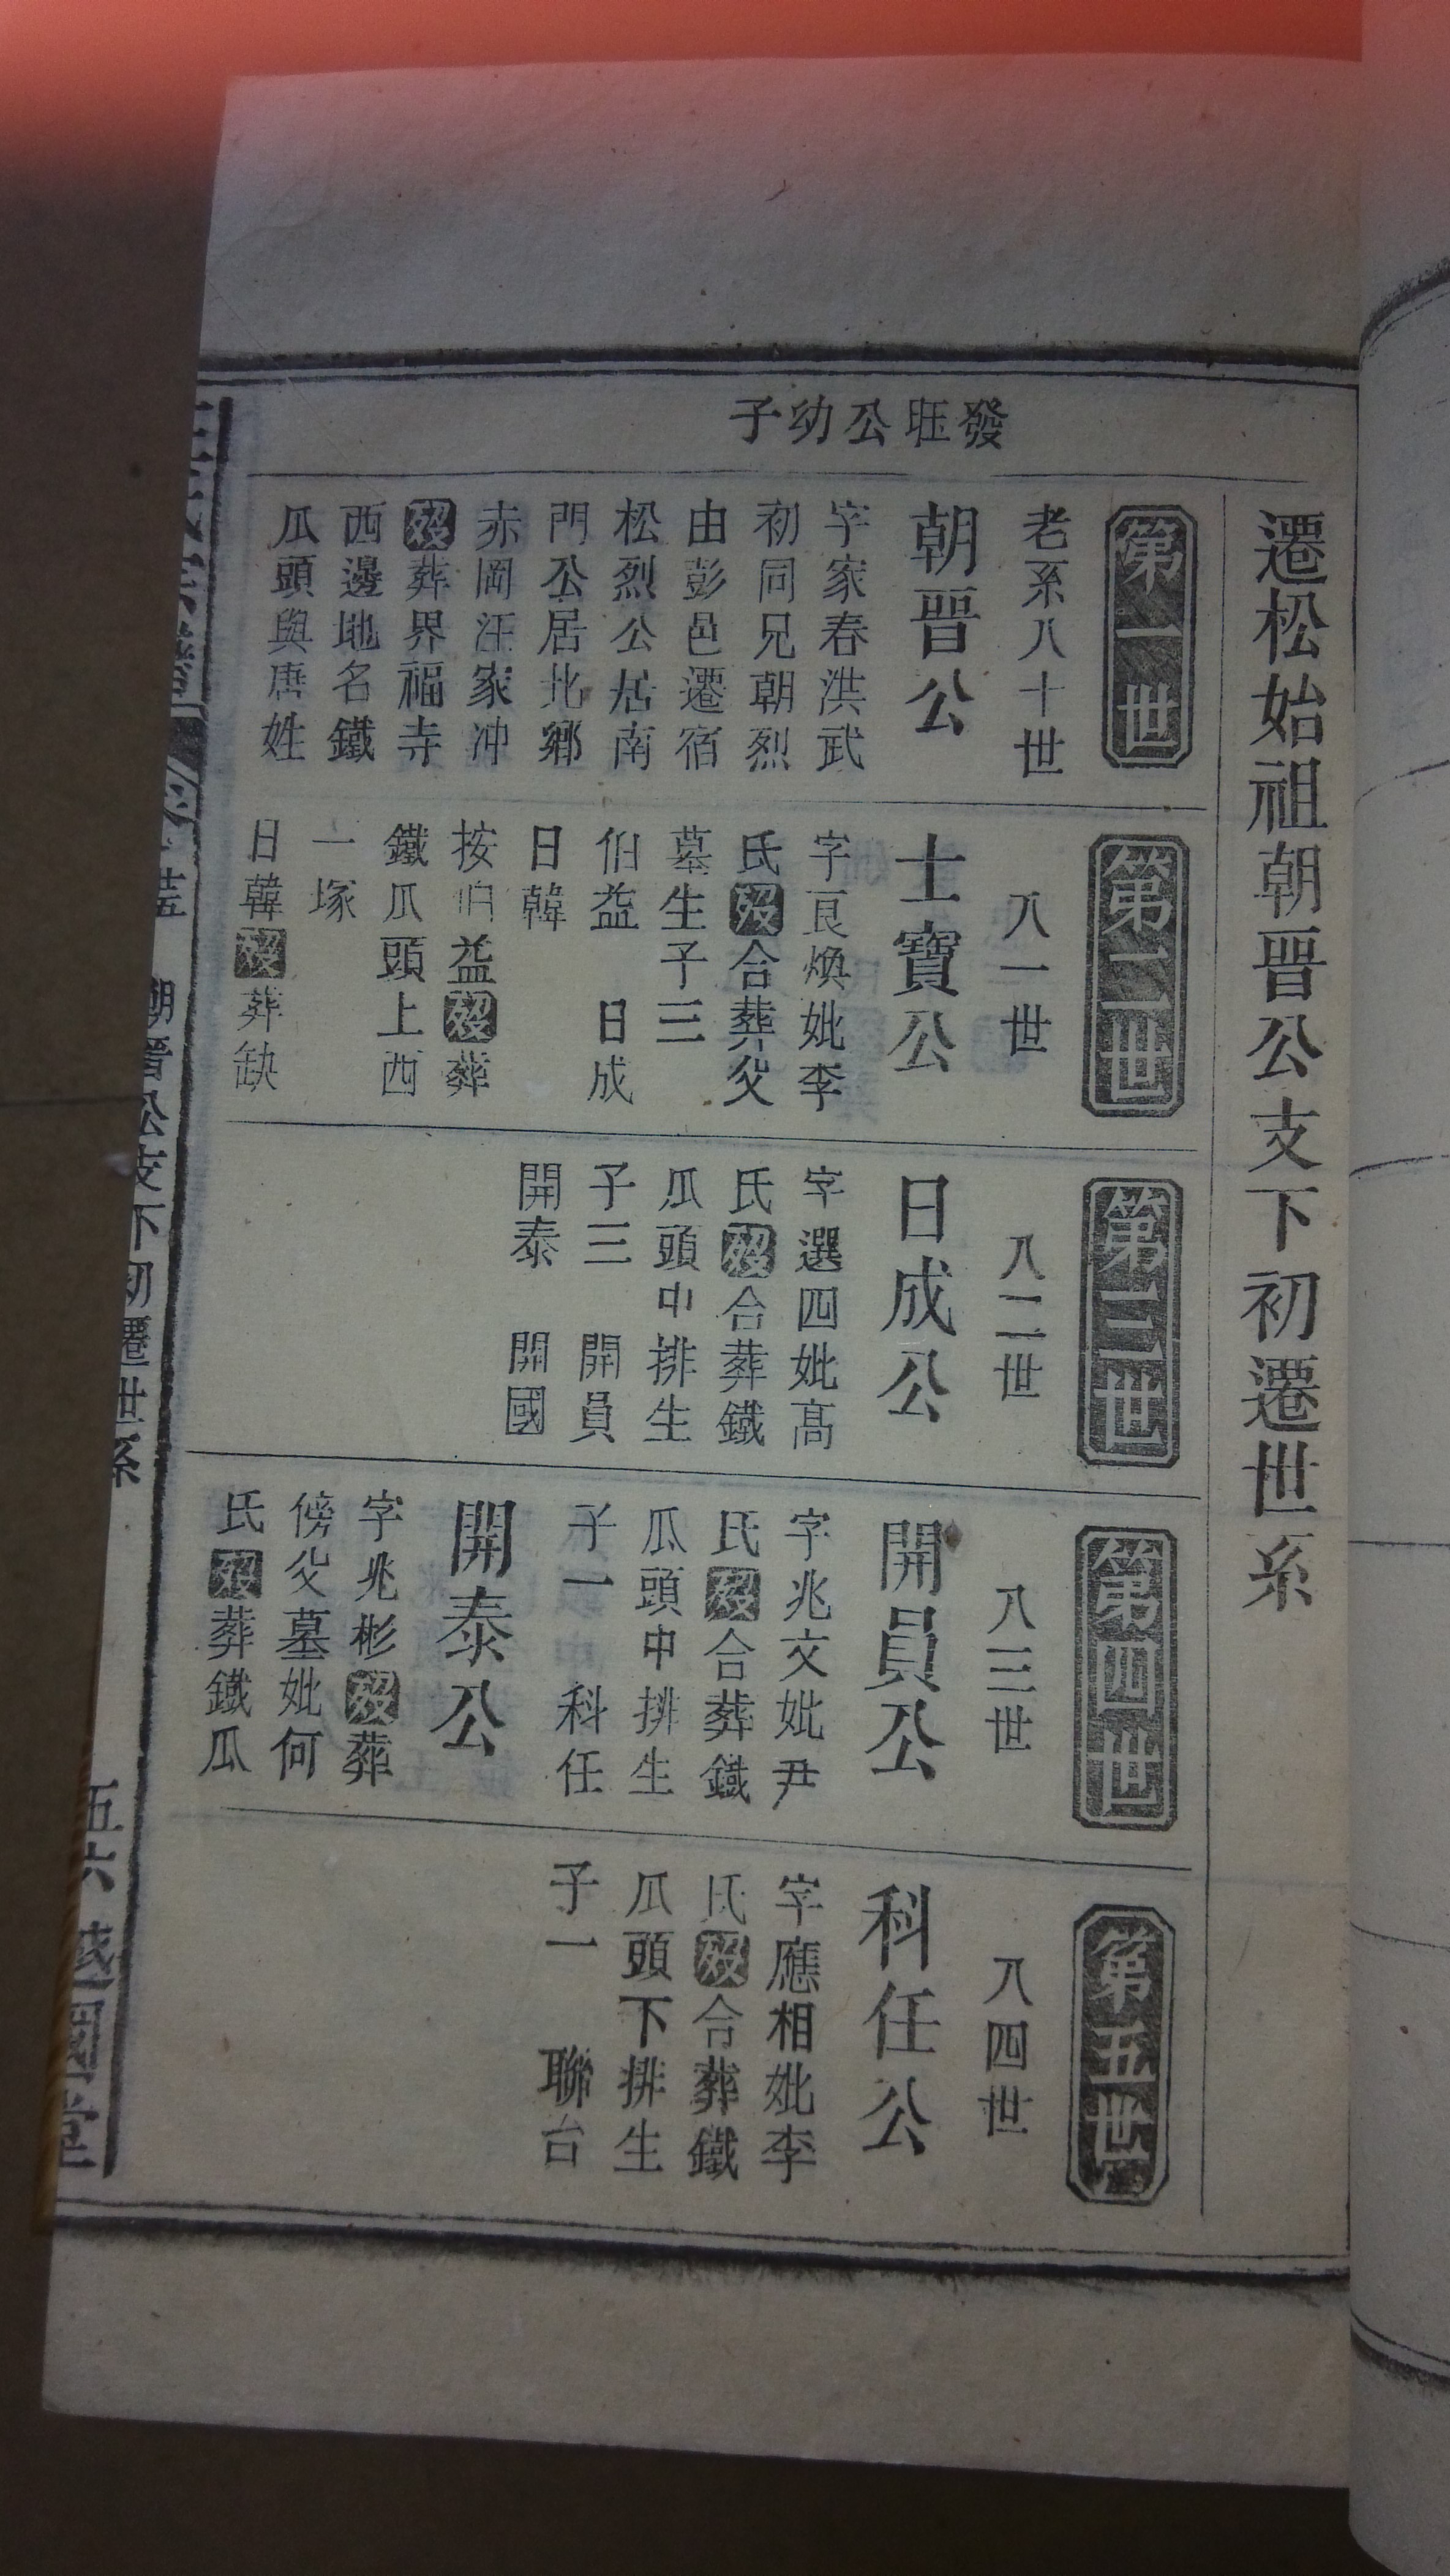 遷松始祖朝晋公支下初遷世系
發珏公幼子
第一世
老系八十世
朝晋公
字家春洪武
初同兄朝烈
由彭邑遷宿
松烈公居南
門公居北鄉
赤岡汪家冲
歿葬界福寺
西邊地名鐵
瓜頭與唐姓
第二世
八一世
士寶公
字艮煥妣李
氏歿合葬父
墓生子三
伯益 日成
日韓
按伯益歿葬
鐵瓜頭上西
一塚
日韓歿葬缺
第三世
八二世
日成公
字選四妣高
氏歿合葬鐵
瓜頭中排生
子三 開員
開泰 開國
第四世
八三世
開員公
字兆文妣尹
氏歿合葬鐵
瓜頭中排生
子一 科任
開泰公
字兆彬歿葬
傍父墓妣何
氏歿葬鐵瓜
第五世
八四世
科任公
字應相妣李
氏歿合葬鐵
瓜頭下排生
子一 聯台
朝晋公支下初遷世系
五六 越國堂